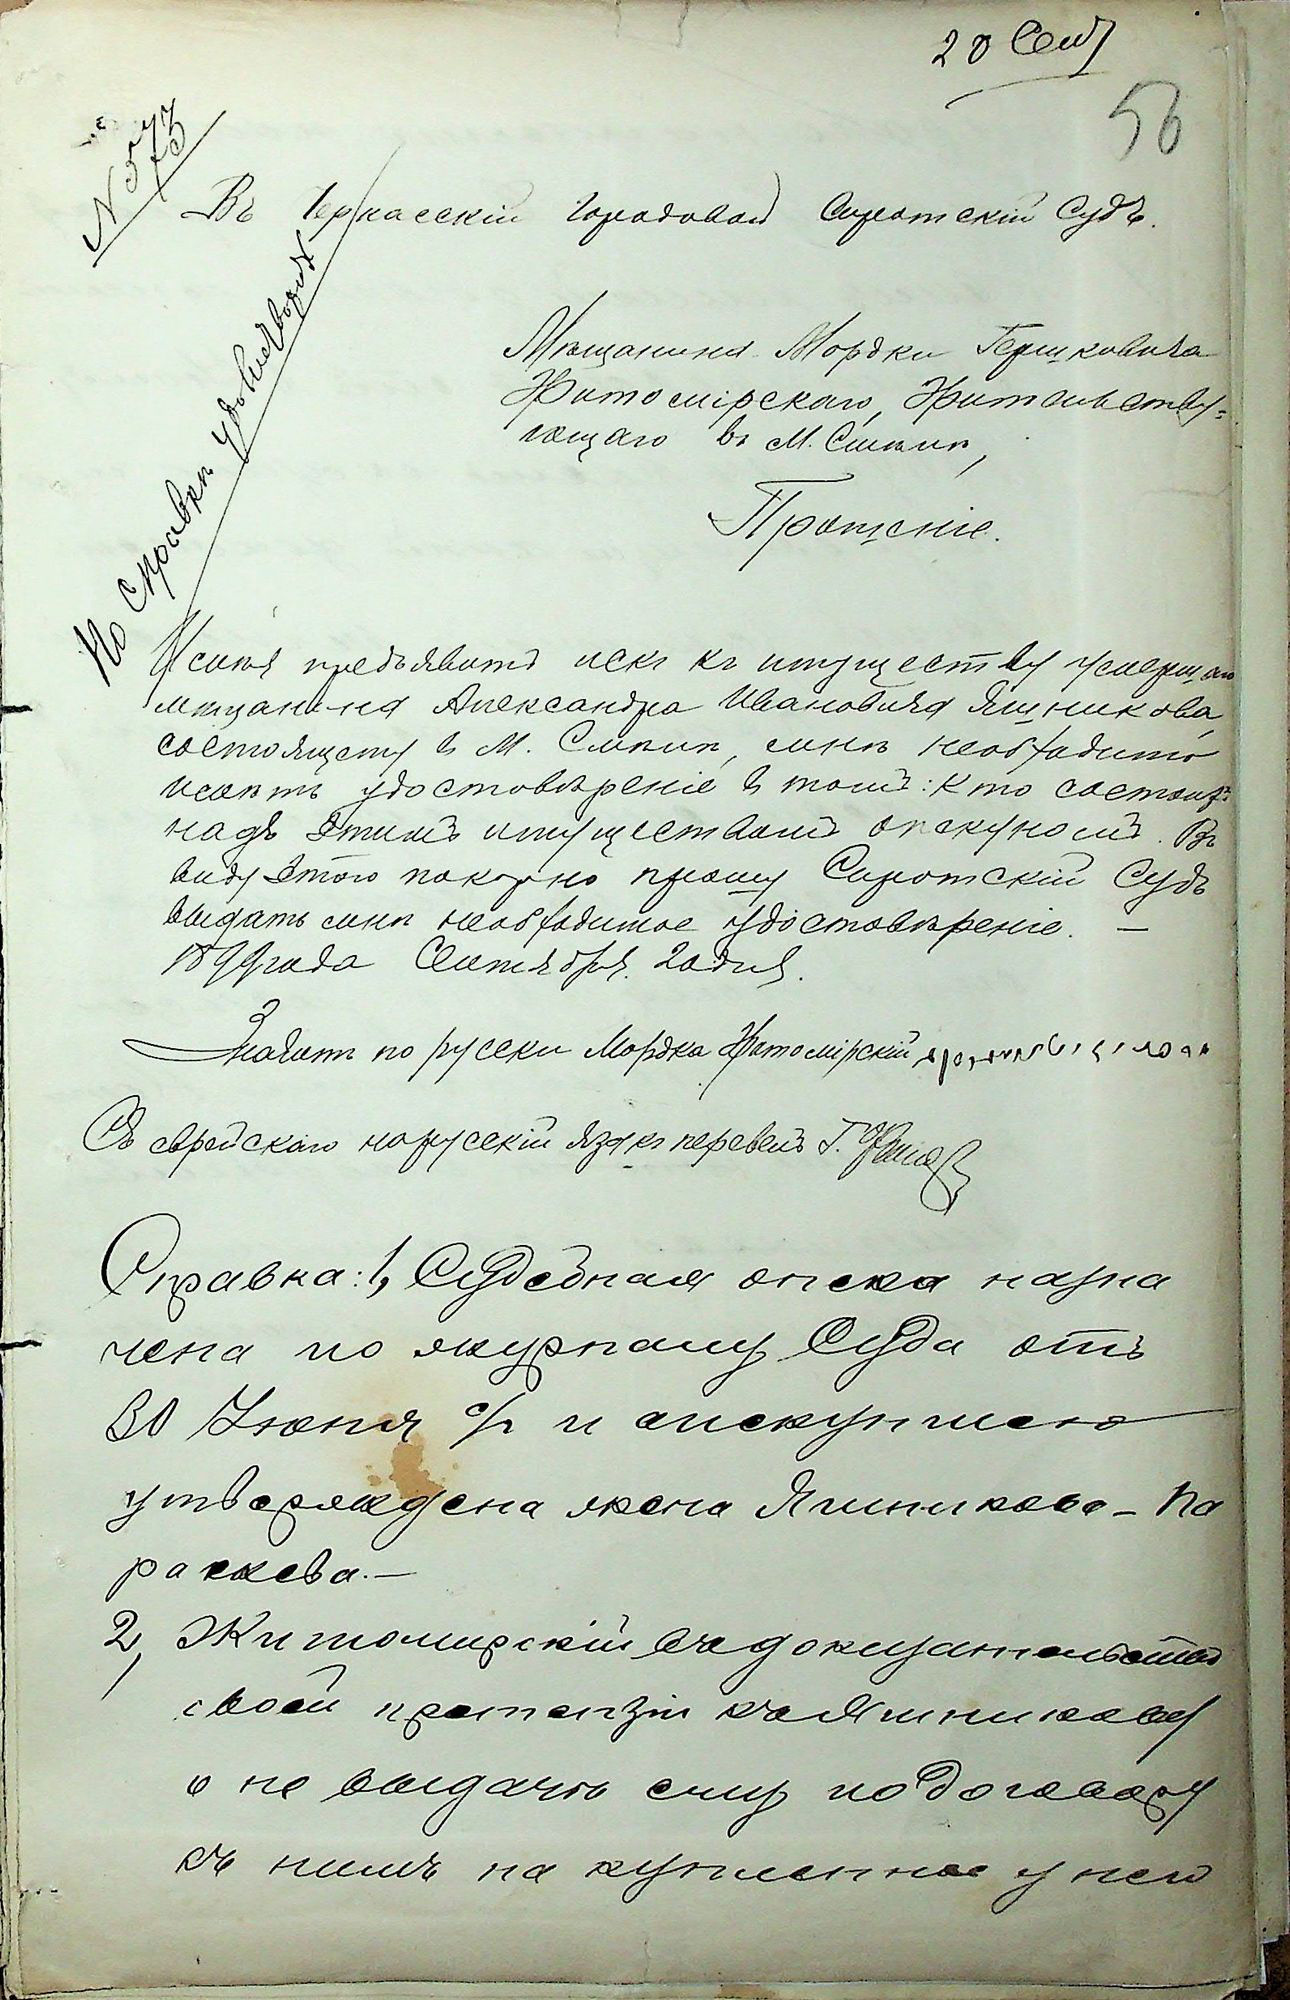 20 Сент
56
№ 573
Въ Черкасскій Городовой Сиротскій Судъ.
По справкѣ удовлетворить
Мѣщанина Мордки Гершковича
Житомірскаго, Жительству-
ющаго въ М. Смѣлѣ,
Прошеніе.
Имѣя предъявить искъ къ имуществу умершаго
мѣщанина Александра Ивановича Яшникова,
состоящему в М. Смѣлѣ, мнѣ необходимо
имѣть удостовѣреніе в томъ: кто состоитъ
надъ этимъ имуществомъ опекуномъ. Въ
виду этого покорно прошу Сиротскій Судъ
выдать мнѣ необходимое удостовѣреніе. —
1899 года Сентября 20 дня.
Значитъ по русски Мордка Житомірскій
Съ еврейскаго на русскій языкъ перевелъ Г.
Справка: 1, Судебная опека назна
чена по журналу Суда отъ
30 Июня с/г и опекуншею
утверждена жена Яшникова – Па
раскева. —
2, Житомирскій въ доказательство
своей претензіи къ Яшникову
о не выдачѣ ему по договору
съ нимъ на купленное у него